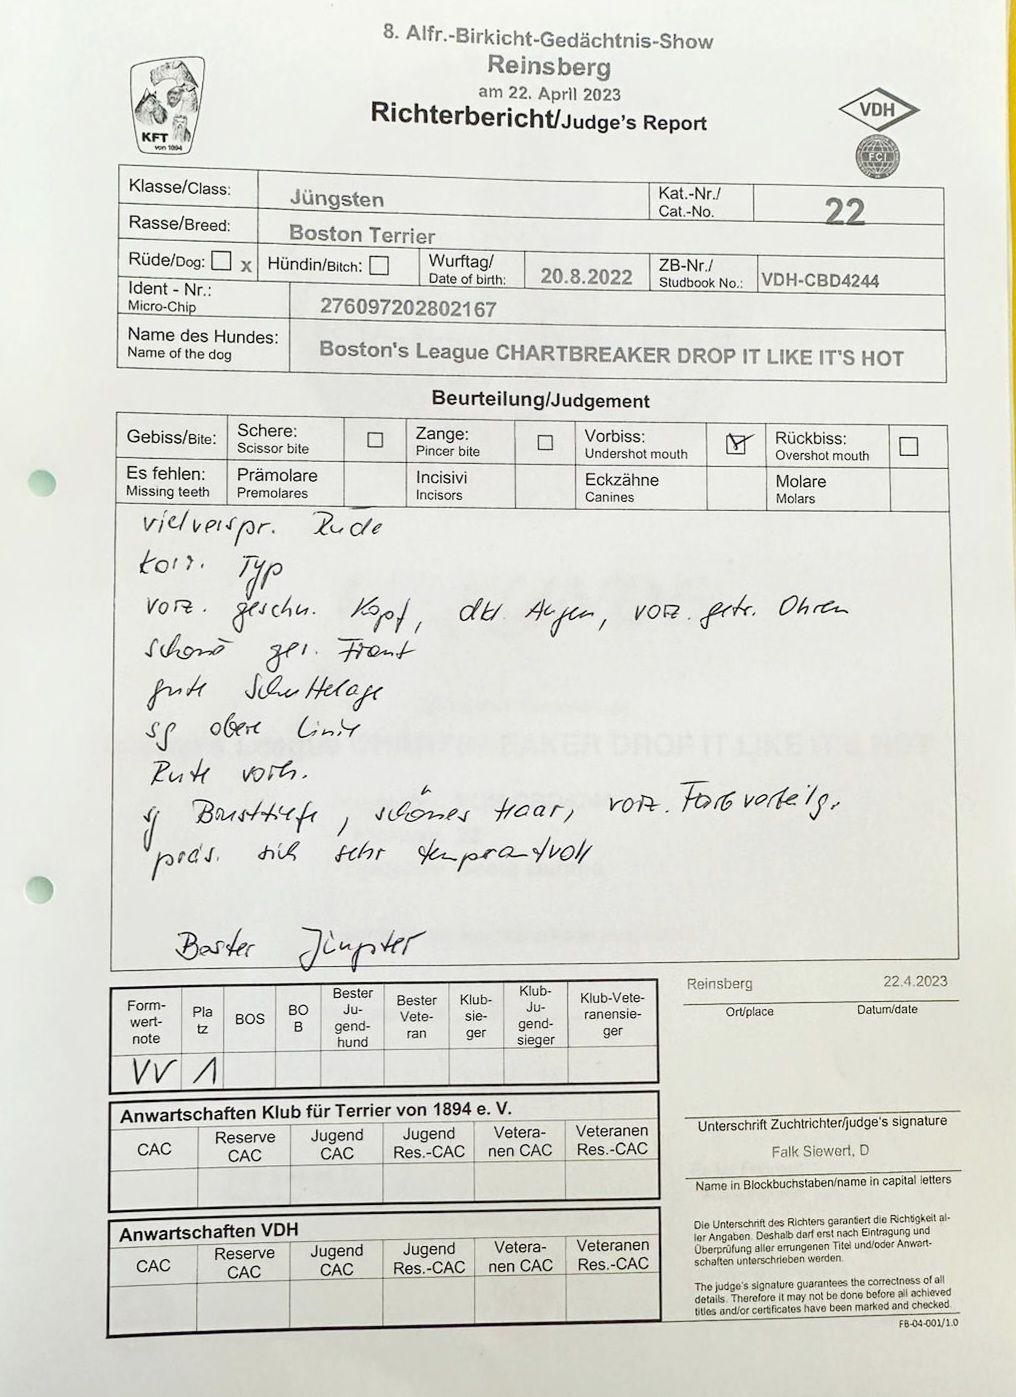 8. Alfr.-Birkicht-Gedächtnis-Show
Reinsberg
am 22. April 2023
Richterbericht/Judge's Report
KFT
von 1894
VDH
FCI
Klasse/Class: Jüngsten Kat.-Nr./ Cat.-No. 22
Rasse/Breed: Boston Terrier
Rüde/Dog: ☐ x Hündin/Bitch: ☐ Wurftag/ Date of birth: 20.8.2022 ZB-Nr./ Studbook No.: VDH-CBD4244
Ident - Nr.: Micro-Chip 276097202802167
Name des Hundes: Name of the dog Boston's League CHARTBREAKER DROP IT LIKE IT'S HOT
Beurteilung/Judgement
Gebiss/Bite: Schere: Scissor bite ☐ Zange: Pincer bite ☐ Vorbiss: Undershot mouth ☑ Rückbiss: Overshot mouth ☐
Es fehlen: Missing teeth Prämolare Premolares Incisivi Incisors Eckzähne Canines Molare Molars
vielverspr. Rüde
korr. Typ
vorz. geschn. Kopf, dkl. Augen, vorz. getr. Ohren
schöne ger. Front
gute Schulterlage
sg obere Linie
Rute vorh.
sg Brusttiefe, schönes Haar, vorz. Farbverteilg.
präs. sich sehr temperamtvoll
Bester Jüngster
Form-wert-note Pla tz BOS BO B Bester Ju-gend-hund Bester Vete-ran Klub-sie-ger Klub-Ju-gend-sieger Klub-Vete-ranensie-ger
VV 1
Reinsberg 22.4.2023
Ort/place Datum/date
Anwartschaften Klub für Terrier von 1894 e. V.
CAC Reserve CAC Jugend CAC Jugend Res.-CAC Vetera-nen CAC Veteranen Res.-CAC
Anwartschaften VDH
CAC Reserve CAC Jugend CAC Jugend Res.-CAC Vetera-nen CAC Veteranen Res.-CAC
Unterschrift Zuchtrichter/judge's signature
Falk Siewert, D
Name in Blockbuchstaben/name in capital letters
Die Unterschrift des Richters garantiert die Richtigkeit al-
ler Angaben. Deshalb darf erst nach Eintragung und
Überprüfung aller errungenen Titel und/oder Anwart-
schaften unterschrieben werden.
The judge's signature guarantees the correctness of all
details. Therefore it may not be done before all achieved
titles and/or certificates have been marked and checked.
FB-04-001/1.0